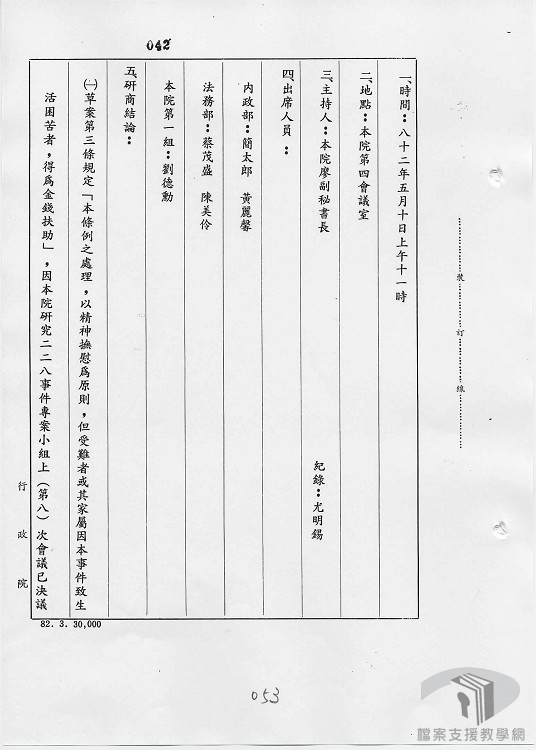 042
一、時間：八十二年五月十日上午十一時
二、地點：本院第四會議室
三、主持人：本院廖副秘書長 紀錄：尤明錫
四、出席人員：
內政部：簡太郎 黃麗馨
法務部：蔡茂盛 陳美伶
本院第一組：劉德勳
五、研商結論：
㈠草案第三條規定「本條例之處理，以精神撫慰為原則，但受難者或其家屬因本事件致生
活困苦者，得為金錢扶助」，因本院研究二二八事件專案小組上（第八）次會議已決議
裝訂線
行政院
82. 3. 30,000
053
檔案支援教學網